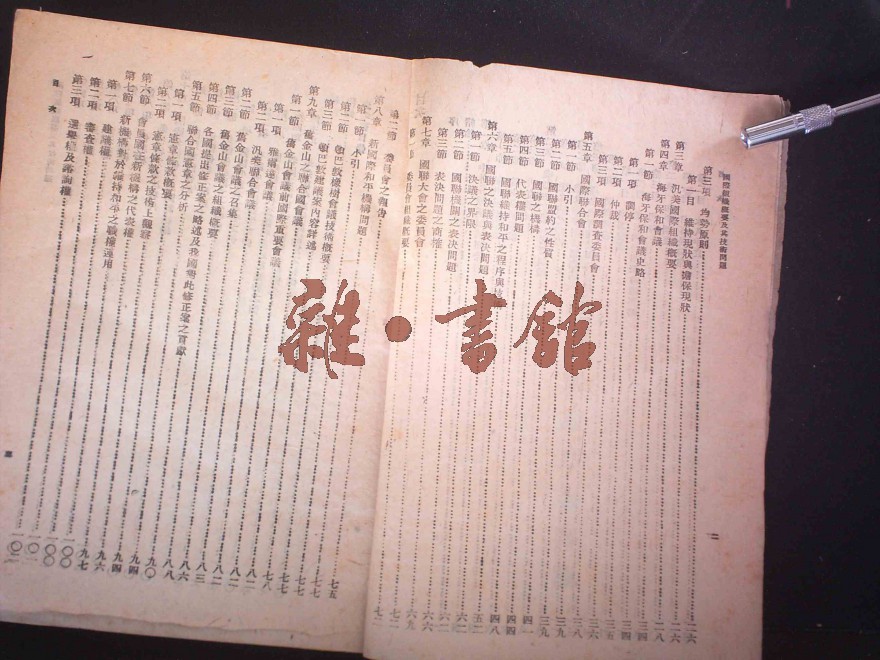 國際組織概要及其技術問題
二
第三項 均勢原則 二六
第一目 維持現狀與擔保現狀 二六
第三章 汎美國際組織概要 二八
第四章 海牙保和會議
第一節 海牙保和會議史略 三四
第一項 調停
第二項 仲裁
第三項 國際調查委員會 三六
第五章 國際聯合會
第一節 小引 三八
第二節 國聯盟約之性質 三九
第三節 國聯之機構 三九
第四節 代表權問題 四一
第五節 國聯維持和平之程序與 四四
第六章 國聯之決議與表決問題 四八
第一節 決議之界限 五二
第二節 國聯機關之表決問題
第三節 表決問題之商榷
第七章 國聯大會之委員會
第一節 委員會組織概要 六九
第二節 委員會之報告 七二
第八章 新國際和平機構問題
第一節 小引 七五
第二節 頓巴敦橡樹會議技術概要 七七
第三節 頓巴敦建議案內容評述 七七
第九章 舊金山之聯合國會議 七七
第一節 舊金山會議前國際重要會議 七七
第一項 雅爾達會議 七八
第二項 汎美聯合會議 八二
第二節 舊金山會議之召集 八二
第三節 舊金山會議之組織概要 八二
第四節 各國提出修正案之略述及我國對此修正案之貢獻 八三
第五節 聯合國憲章之分析 八六
第一項 憲章條款概要 八八
第二項 憲章條款之技術上觀察 九〇
第六節 會員國在新機構之代表權 九四
第七節 新機構對於維持和平之職權運用 九四
第一項 建議權
第二項 審查權
第三項 選舉權及諮詢權
目 次